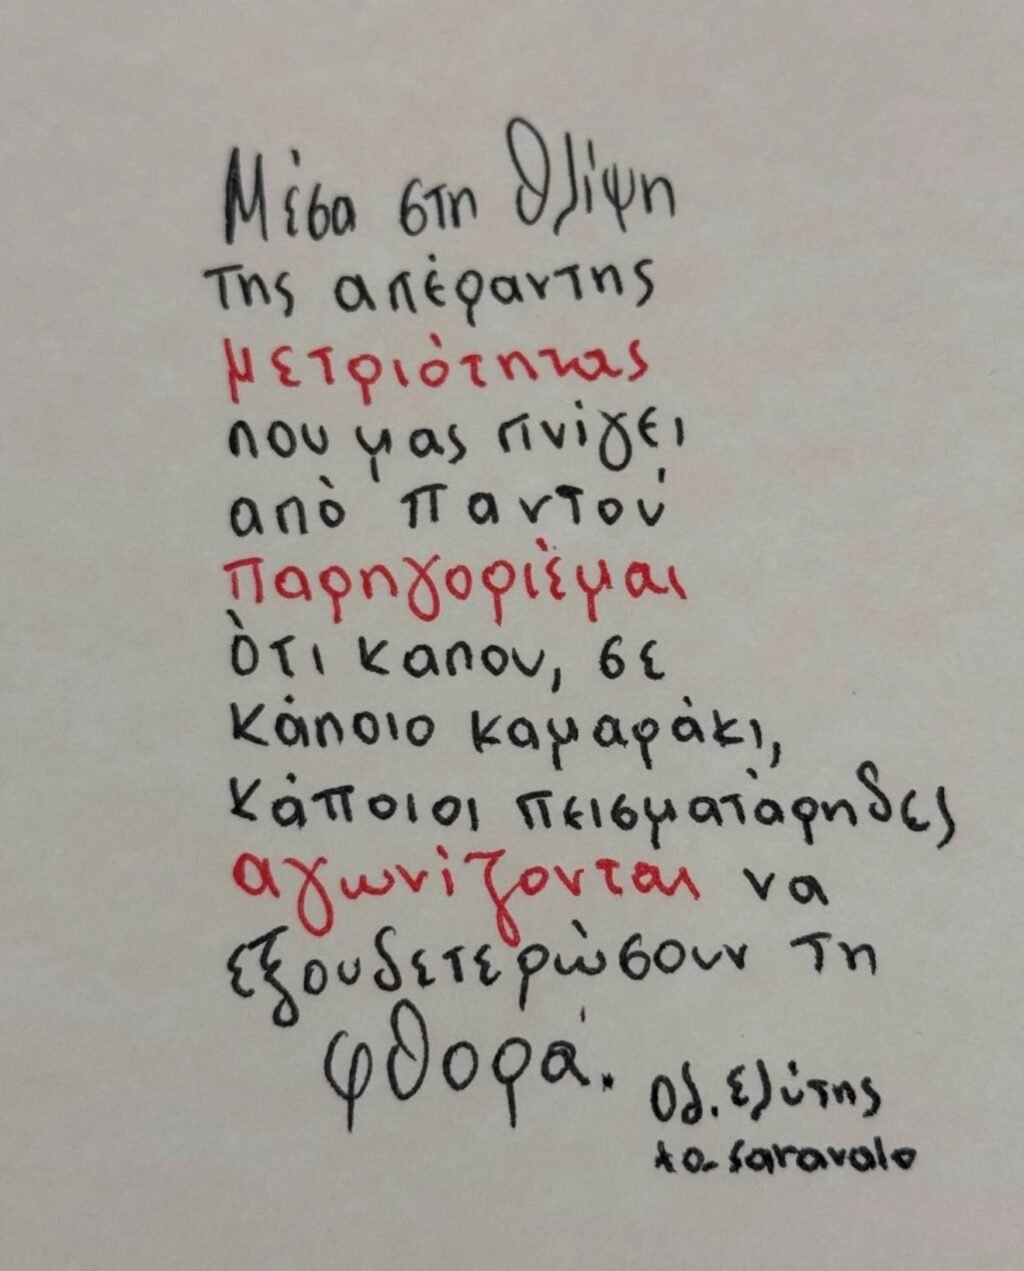 Μέσα στη θλίψη
της απέραντης
μετριότητας
που μας πνίγει
από παντού
παρηγοριέμαι
ότι καπου, σε
κάποιο καμαράκι,
κάποιοι πεισματάρηδες
αγωνίζονται να
εξουδετερώσουν τη
φθορά.
Οδ. Ελύτης
to saravalo